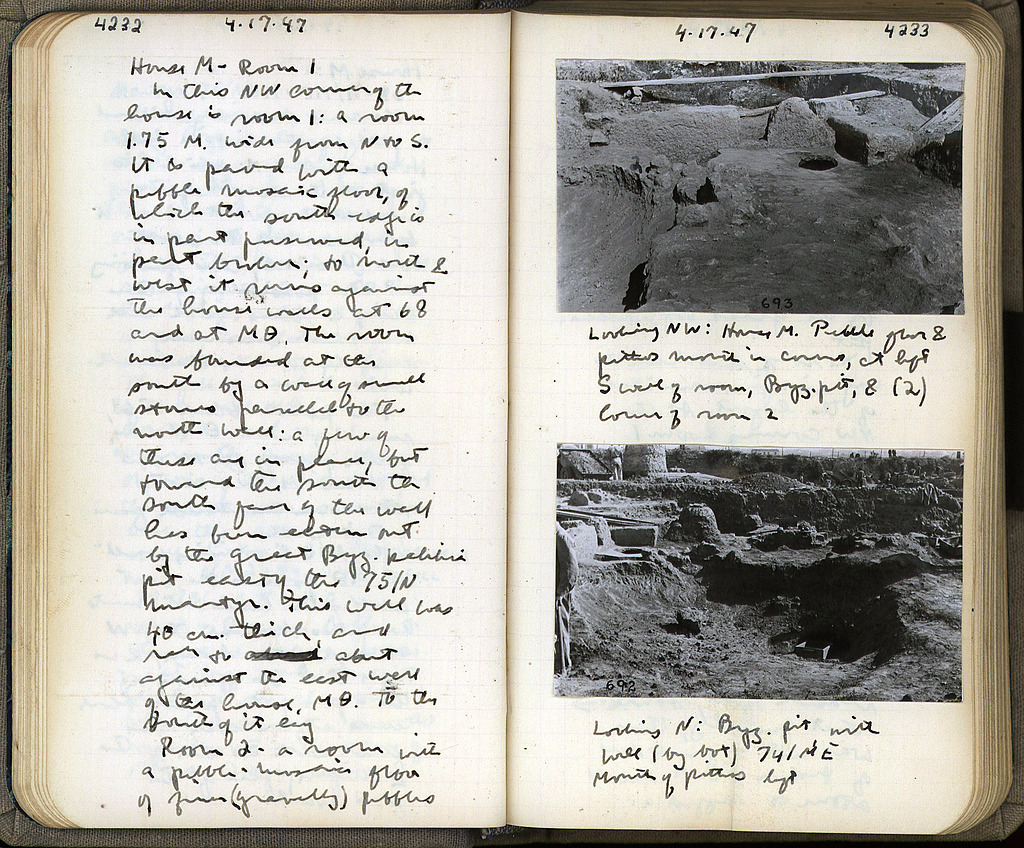 4232 4.17.47
House M - Room 1
In this NW corner of the
house is room 1: a room
1.75 M. wide from N to S.
It is paved with a
pebble mosaic floor, of
which the south edge is
in part preserved, in
part broken; to north &
west it runs against
the house walls at 68
and at ΜΘ. The room
was bounded at the
south by a wall of small
stones parallel to the
north wall: a few of
these are in place, but
toward the south the
south face of the wall
has been eaten out
by the great Byz.
pit east of the 75/Ν
This wall was
40 cm. thick, and
ran to abut
against the east wall
of the house, ΜΘ. To the
south of it lay
Room 2 - a room with
a pebble-mosaic floor
of finer (gravelly) pebbles
4.17.47 4233
693
Looking NW: House M. Pebble floor &
pithos mouth in corner, at left
S wall of room, Byz. pit, & (2)
corner of room 2
692
Looking N: Byz. pit with
well (by box) 74/
Mouth of pithos left